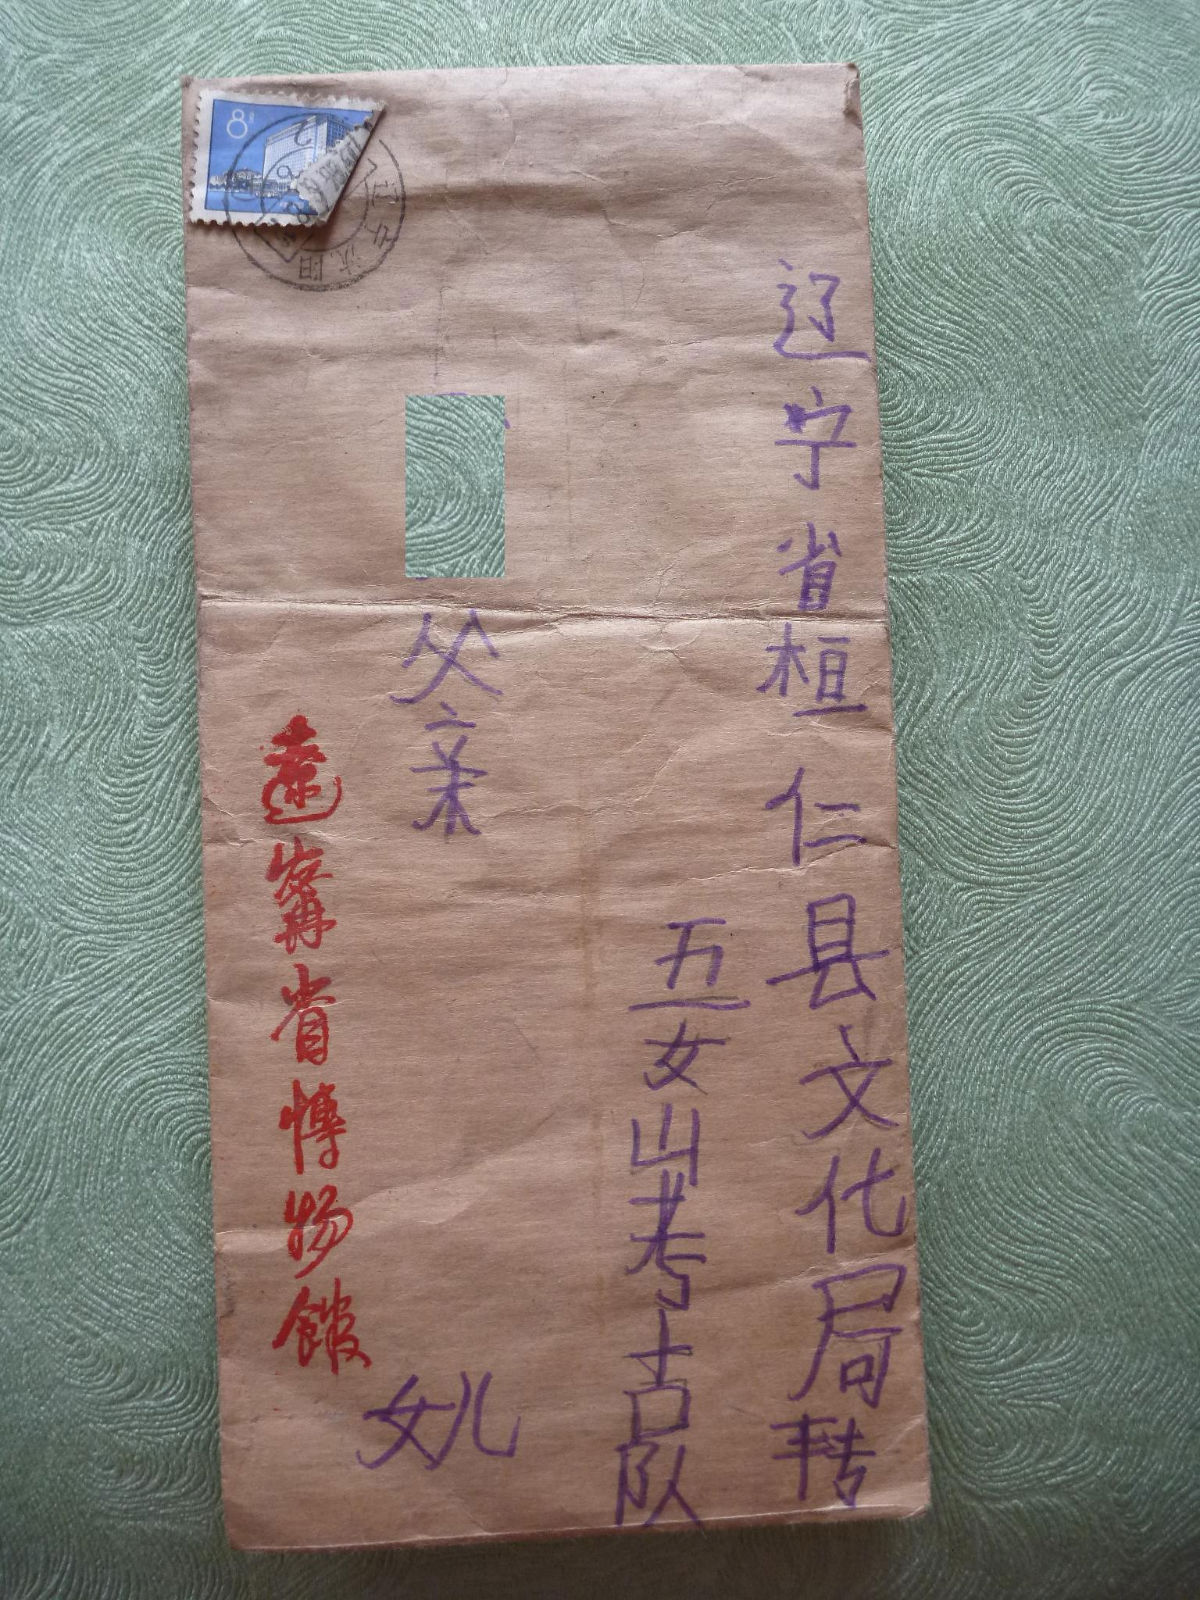 辽宁省桓仁县文化局转
五女山考古队
父亲
女儿
遼寧省博物館
8
辽宁沈阳